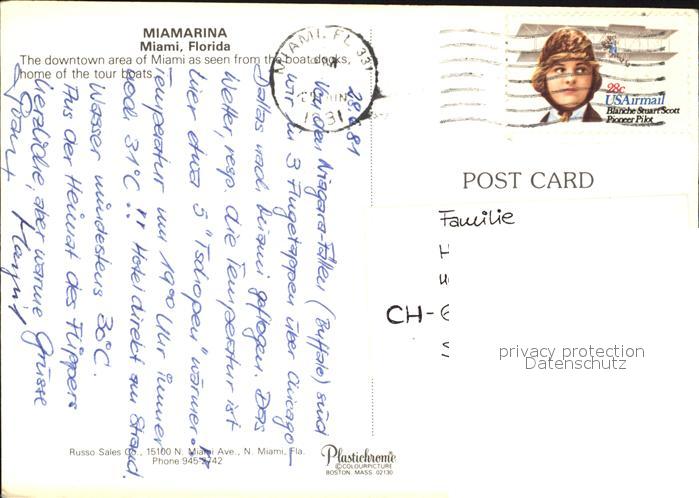 MIAMARINA
Miami, Florida
The downtown area of Miami as seen from the boat docks,
home of the tour boats.
MIAMI, FL 331
1981
28c
USAirmail
Blanche Stuart Scott
Pioneer Pilot
POST CARD
Familie
H
CH-6
privacy protection
Datenschutz
28.6.81
Von den Niagara-Fällen (Buffalo) sind
wir in 3 Flugetappen über Chicago-
Dallas nach Miami geflogen. Das
Wetter, resp. die Temperatur ist
hier etwa 3 "Tschopen" wärmer.
Temperatur um 19.00 Uhr immer
noch 31°C!!! Hotel direkt am Strand.
Wasser mindestens 30°C.
Aus der Heimat des Flippers
herzliche, aber warme Grüsse
Margrit
Russo Sales Co., 15100 N. Miami Ave., N. Miami, Fla.
Phone 945-2742
Plastichrome
© COLOURPICTURE
BOSTON, MASS. 02130